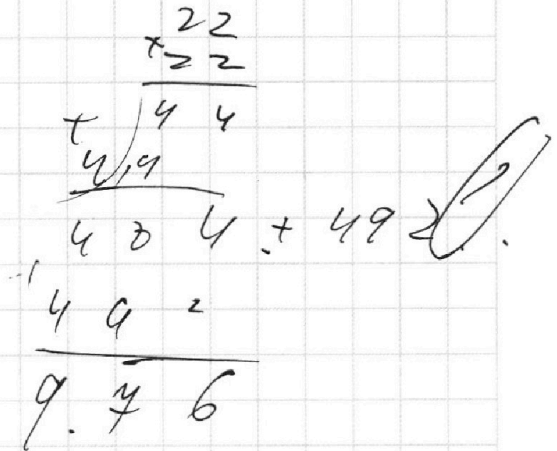 22
×22
44
+
44
484 + 492
492
9.76